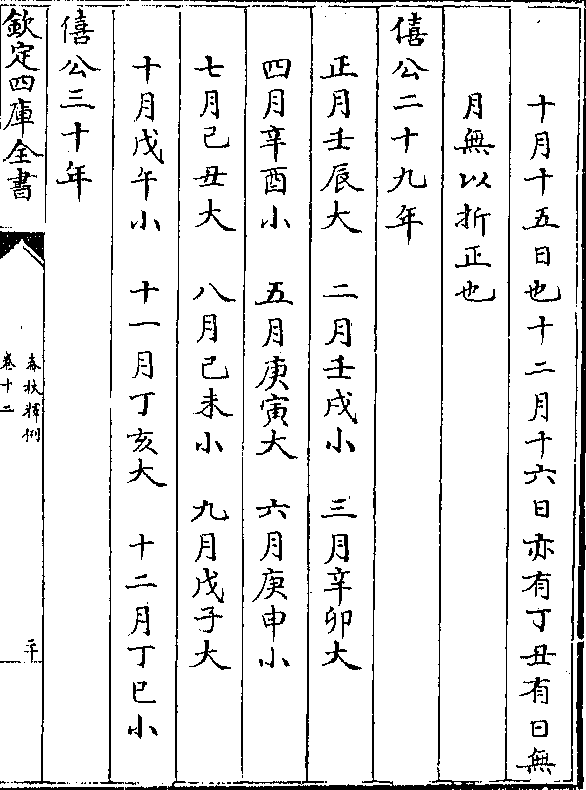 十月十五日也十二月十六日亦有丁丑有日無
月無以折正也
僖公二十九年
正月壬辰大 二月壬戌小 三月辛卯大
四月辛酉小 五月庚寅大 六月庚申小
七月己丑大 八月己未小 九月戊子大
十月戊午小 十一月丁亥大 十二月丁巳小
僖公三十年
欽定四庫全書
春秋釋例
卷十二
二十